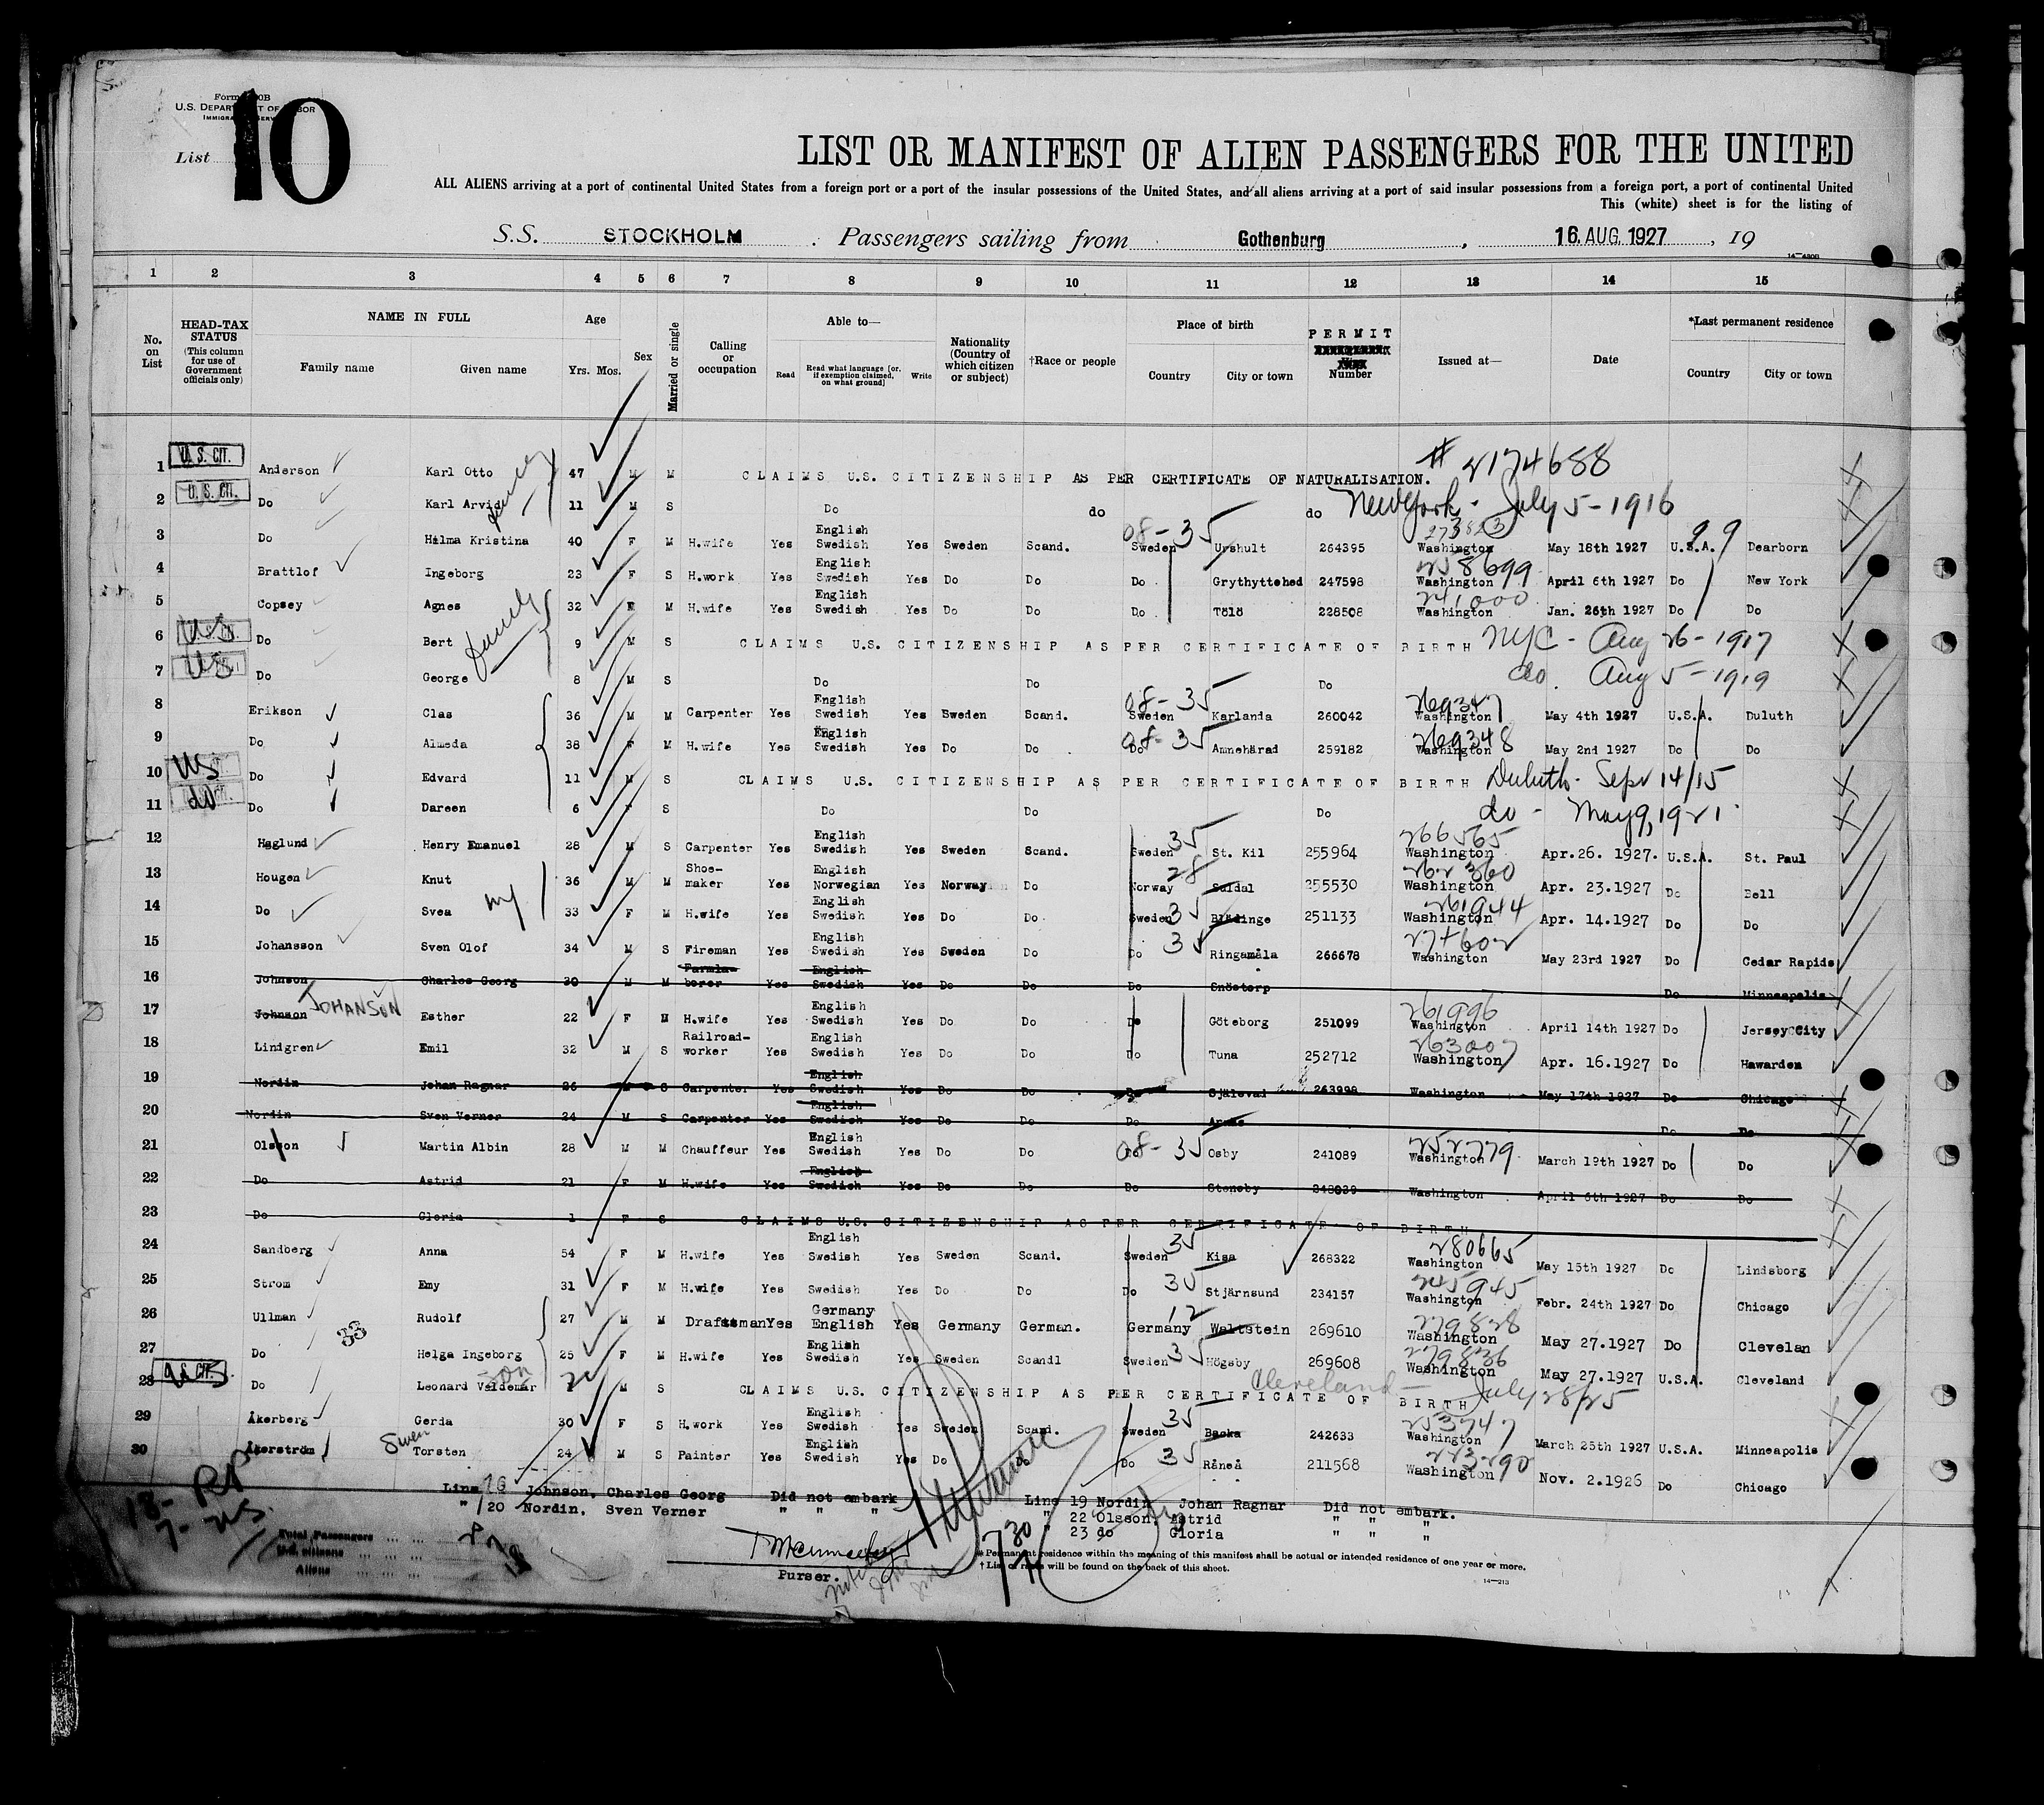 Form 500B
U.S. DEPARTMENT OF LABOR
IMMIGRATION SERVICE
List 10
LIST OR MANIFEST OF ALIEN PASSENGERS FOR THE UNITED
ALL ALIENS arriving at a port of continental United States from a foreign port or a port of the insular possessions of the United States, and all aliens arriving at a port of said insular possessions from a foreign port, a port of continental United
This (white) sheet is for the listing of
S.S. STOCKHOLM . Passengers sailing from Gothenburg , 16. AUG. 1927 , 19
14—4300
1 2 3 4 5 6 7 8 9 10 11 12 13 14 15
No. on List
HEAD-TAX STATUS (This column for use of Government officials only)
NAME IN FULL Family name Given name
Age Yrs. Mos.
Sex
Married or single
Calling or occupation
Able to— Read Read what language (or, if exemption claimed, on what ground) Write
Nationality (Country of which citizen or subject)
†Race or people
Place of birth Country City or town
PERMIT Number
Issued at—
Date
*Last permanent residence Country City or town
1 U. S. CIT. Anderson Karl Otto 47 M M CLAIMS U.S. CITIZENSHIP AS PER CERTIFICATE OF NATURALISATION. # 2174688
2 U. S. CIT. Do Karl Arvid 11 M S Do do do New York - July 5 - 1916
family
3 Do Hilma Kristina 40 F M H.wife Yes English Swedish Yes Sweden Scand. 08-35 Sweden Urshult 264395 Washington May 18th 1927 U.S.A. 99 Dearborn
4 Brattlof Ingeborg 23 F S H.work Yes English Swedish Yes Do Do Do Grythyttehed 247598 258699 Washington April 6th 1927 Do New York
5 Copsey Agnes 32 F M H.wife Yes English Swedish Yes Do Do Do Tölö 228508 241000 Washington Jan. 26th 1927 Do Do
family
6 US Do Bert 9 M S CLAIMS U.S. CITIZENSHIP AS PER CERTIFICATE OF BIRTH NYC - Aug 26 - 1917
7 US Do George 8 M S Do Do Do do. Aug 5 - 1919
8 Erikson Clas 36 M M Carpenter Yes English Swedish Yes Sweden Scand. 08-35 Sweden Karlanda 260042 269347 Washington May 4th 1927 U.S.A. Duluth
9 Do Almeda 38 F M H.wife Yes English Swedish Yes Do Do 08-35 Do Amnehärad 259182 269348 Washington May 2nd 1927 Do Do
10 US Do Edvard 11 M S CLAIMS U.S. CITIZENSHIP AS PER CERTIFICATE OF BIRTH Duluth - Sept 14/15
11 do Do Dareen 6 F S Do Do Do do - May 9, 1921
12 Haglund Henry Emanuel 28 M S Carpenter Yes English Swedish Yes Sweden Scand. Sweden 35 St. Kil 255964 266565 Washington Apr.26. 1927. U.S.A. St. Paul
13 Hougen Knut 36 M M Shoe-maker Yes English Norwegian Yes Norway Do Norway 28 Suldal 255530 262360 Washington Apr. 23.1927 Do Bell
14 Do Svea 33 F M H.wife Yes English Swedish Yes Do Do Sweden 35 Blädinge 251133 261944 Washington Apr. 14.1927 Do Do
15 Johansson Sven Olof 34 M S Fireman Yes English Swedish Yes Sweden Do Do 35 Ringamåla 266678 Washington May 23rd 1927 Do Cedar Rapids
16 Johnson Charles Georg 30 M M Farmla-borer Yes English Swedish Yes Do Do Do Snöstorp Do Minneapolis
17 Johnson JOHANSON Esther 22 F M H.wife Yes English Swedish Yes Do Do Do Göteborg 251099 261996 Washington April 14th 1927 Do Jersey City
18 Lindgren Emil 32 M S Railroad-worker Yes English Swedish Yes Do Do Do Tuna 252712 263007 Washington Apr. 16.1927 Do Hawarden
19 Nordin Johan Ragnar 26 M S Carpenter Yes English Swedish Yes Do Do Do Själevad 263998 Washington May 17th 1927 Do Chicago
20 Nordin Sven Verner 24 M S Carpenter Yes English Swedish Yes Do Do Do Do Do
21 Olsson Martin Albin 28 M M Chauffeur Yes English Swedish Yes Do Do 08-35 Do Osby 241089 252779 Washington March 19th 1927 Do Do
22 Do Astrid 21 F M H.wife Yes English Swedish Yes Do Do Do Steneby 248039 Washington April 6th 1927 Do Do
23 Do Gloria 1 F S CLAIMS U.S. CITIZENSHIP AS PER CERTIFICATE OF BIRTH
24 Sandberg Anna 54 F M H.wife Yes English Swedish Yes Sweden Scand. Sweden 35 Kisa 268322 280665 Washington May 15th 1927 Do Lindsborg
25 Strom Emy 31 F M H.wife Yes Swedish Yes Do Do Do 35 Stjärnsund 234157 245945 Washington Febr. 24th 1927 Do Chicago
26 Ullman Rudolf 27 M M Draftsman Yes Germany English Yes Germany German. Germany 12 Waltstein 269610 279828 Washington May 27.1927 Do Clevelan
33
27 Do Helga Ingeborg 25 F M H.wife Yes English Swedish Yes Sweden Scandl Sweden 35 Högsby 269608 279836 Washington May 27.1927 U.S.A. Cleveland
28 U.S. CIT. Do Leonard Valdemar son 2 M S CLAIMS U.S. CITIZENSHIP AS PER CERTIFICATE OF BIRTH Cleveland - July 28/25
29 Åkerberg Gerda 30 F S H.work Yes English Swedish Yes Sweden Scand. Sweden 35 Backa 242633 253747 Washington March 25th 1927 U.S.A. Minneapolis
30 Åkerström Swen Torsten 24 M S Painter Yes English Swedish Yes Do Do 35 Råneå 211568 223290 Washington Nov. 2.1926 Do Chicago
Line 16 Johnson, Charles Georg Did not embark Line 19 Nordin Johan Ragnar Did not embark.
" 20 Nordin, Sven Verner " " " " 22 Olsson, Astrid " " "
" 23 do Gloria " " "
Total Passengers
U.S. citizens
Aliens
Purser.
* Permanent residence within the meaning of this manifest shall be actual or intended residence of one year or more.
† List of races will be found on the back of this sheet.
14—213